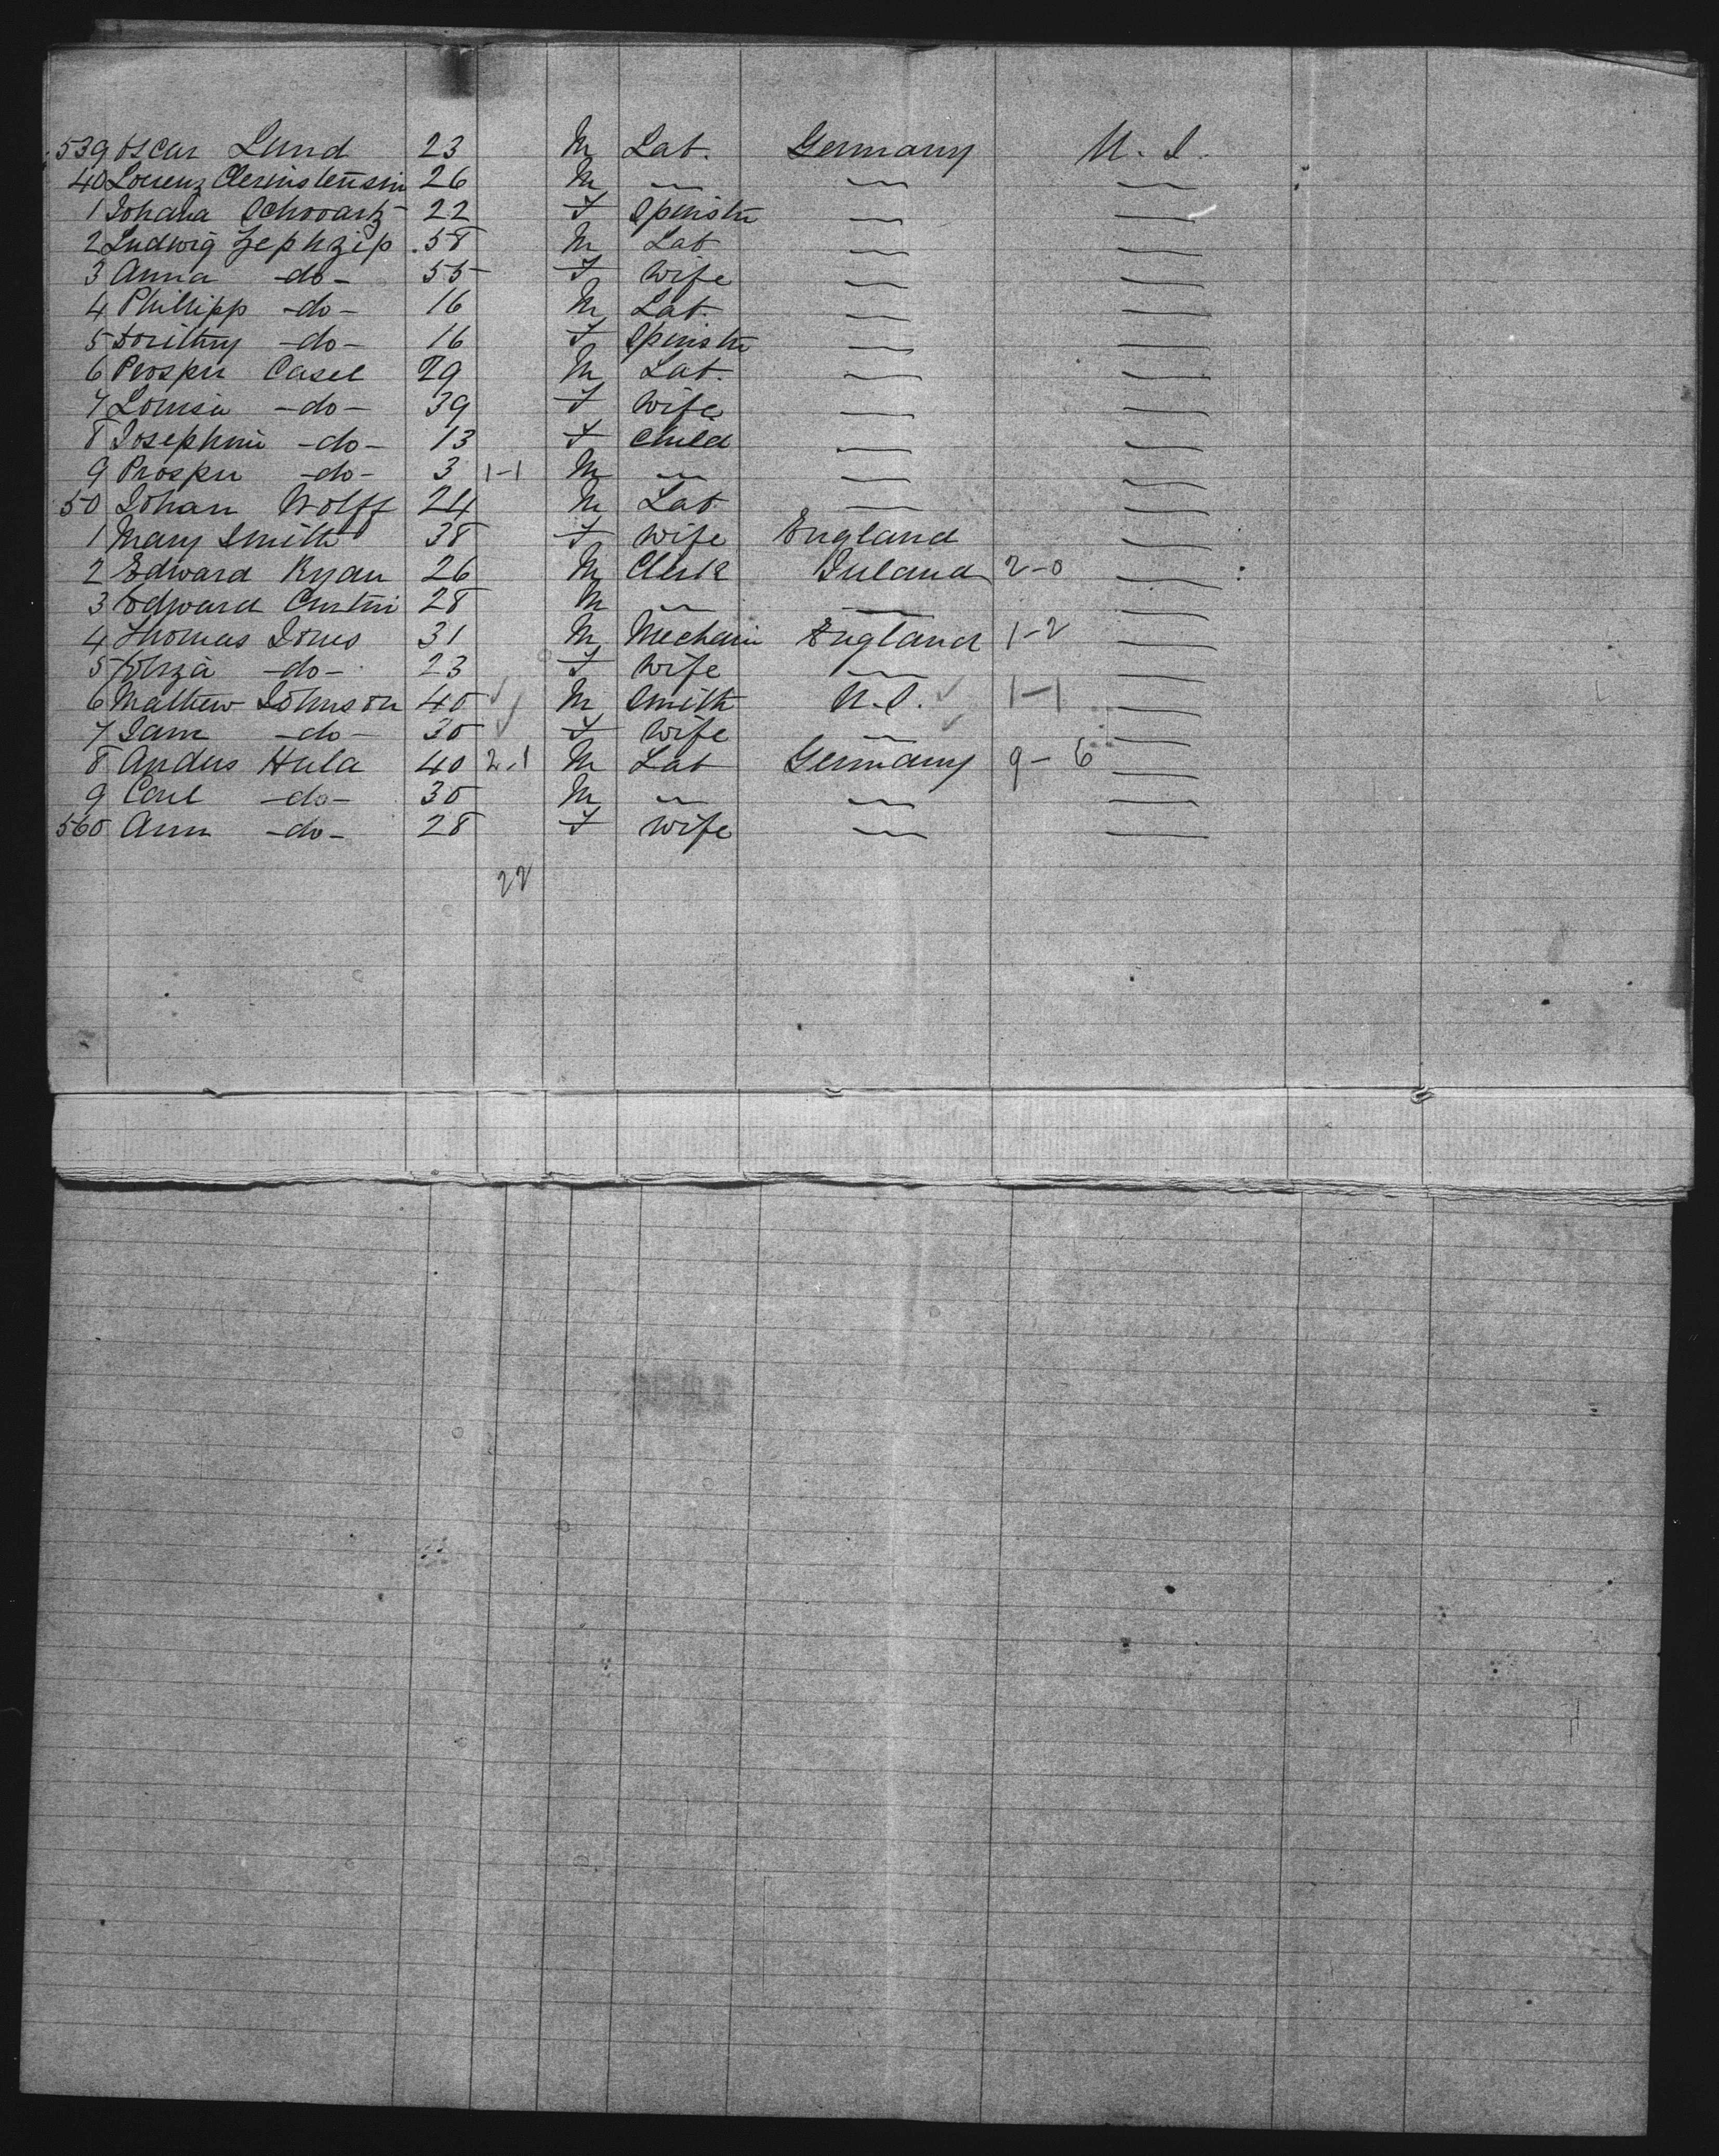 539 Oscar Lund 23 M Lab. Germany U. S.
40 Lorenz 26 M — — —
1 Johana Schwartz 22 F Spinstr — —
2 Ludwig Zephzip 58 M Lab — —
3 Anna -do- 55 F Wife — —
4 Phillipp -do- 16 M Lab. — —
5 Dorithy -do- 16 F Spinstr — —
6 Prosper Casel 29 M Lab. — —
7 Louisa -do- 39 F Wife — —
8 Josephine -do- 13 F Child — —
9 Prosper -do- 3 1-1 M — — —
50 Johan Wolff 24 M Lab — —
1 Mary Smith 38 F Wife England —
2 Edward Ryan 26 M Clerk Ireland 2-0 —
3 Edward Curtin 28 M — — —
4 Thomas Jones 31 M Mechani England 1-2 —
5 -do- 23 F Wife — —
6 Mathew Johnson 40 ✓ M Smith U.S. ✓ 1-1 —
7 Jane -do- 30 ✓ F Wife — ✓ —
8 Andrs Hula 40 2.1 M Lab Germany 9-6 —
9 Carl -do- 30 M — — —
560 Ann -do- 28 F Wife — —
22